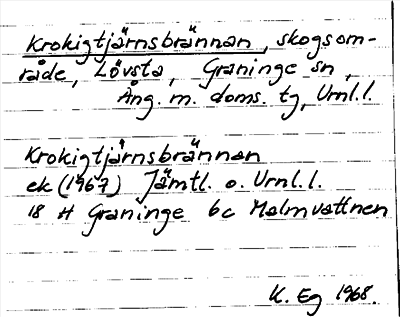 Krokigtjärnsbrännan, skogsom-
råde, Lövsta, Graninge sn,
Ång. m. doms. tg, Vrnl. l.
Krokigtjärnsbrännan
ek (1967) Jämtl. o. Vrnl. l.
18 H Graninge 6c Malmvattnen
K. Eg 1968.